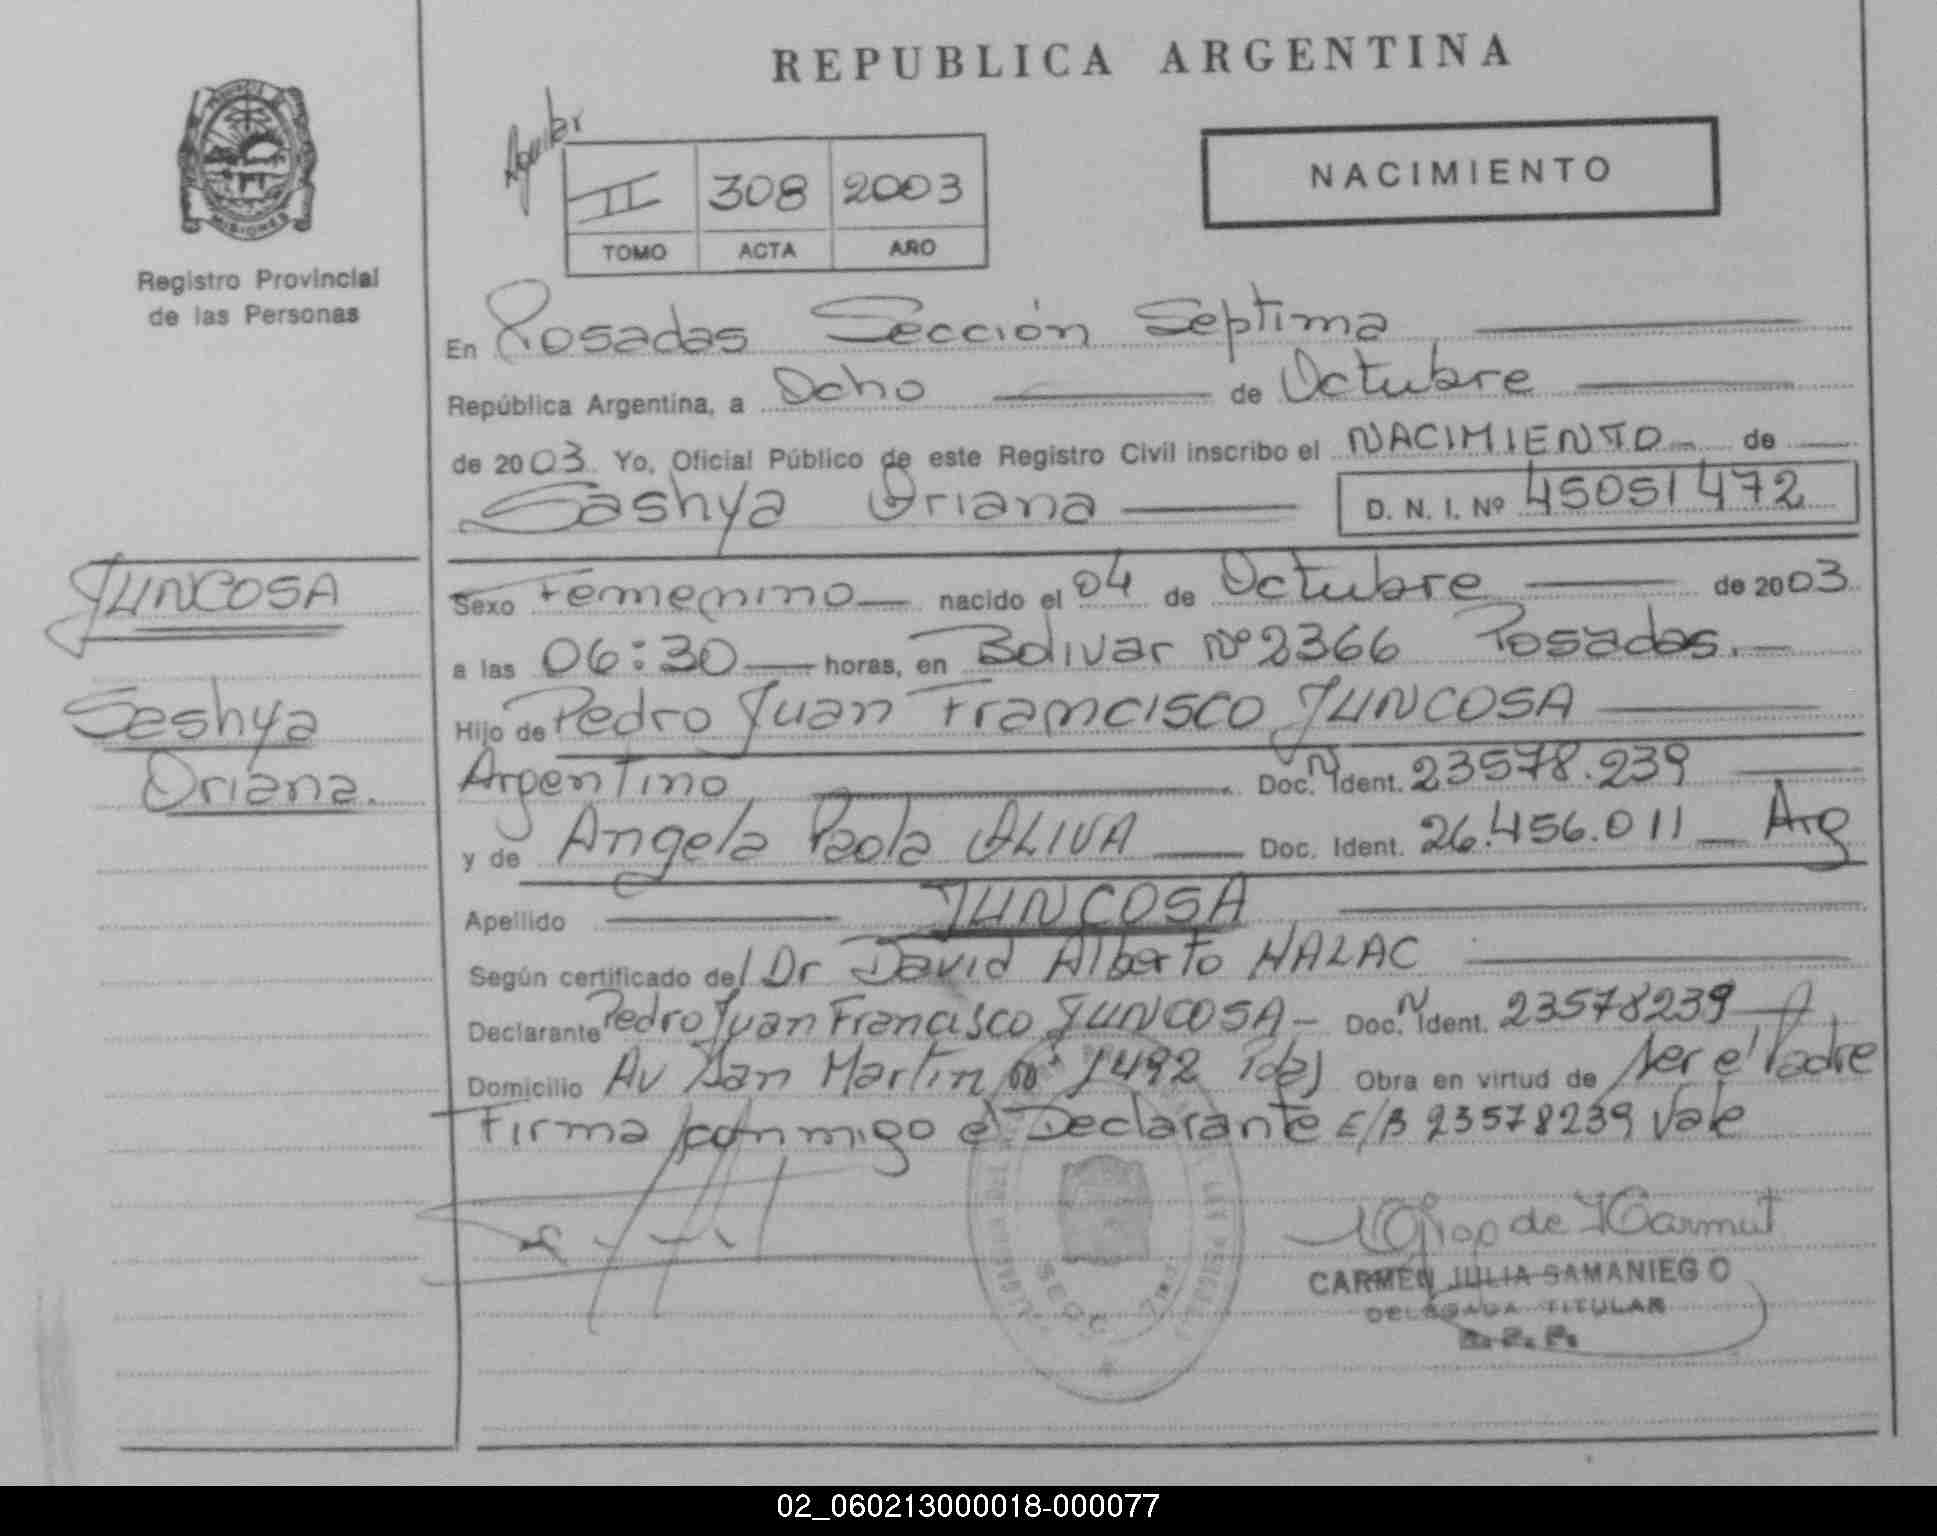 REPUBLICA ARGENTINA
PROVINCIA DE
MISIONES
Registro Provincial
de las Personas
Aguilar
II 308 2003
TOMO ACTA AÑO
NACIMIENTO
En Posadas Sección Septima
República Argentina, a Ocho de Octubre
de 2003 Yo, Oficial Público de este Registro Civil inscribo el NACIMIENTO de
Sashya Oriana D. N. I. Nº 45051472
JUNCOSA
Seshya
Oriana.
Sexo Femenino nacido el 04 de Octubre de 2003
a las 06:30 horas, en Bolivar Nº 2366 Posadas.
Hijo de Pedro Juan Francisco JUNCOSA
Argentino Doc. N Ident. 23578.239
y de Angela Paola OLIVA Doc. Ident. 26.456.011 Arg
Apellido JUNCOSA
Según certificado del Dr David Alberto HALAC
Declarante Pedro Juan Francisco JUNCOSA Doc. N Ident. 23578239
Domicilio Av San Martin Nº 1492 Pdas Obra en virtud de ser el Padre
Firma conmigo el Declarante E/B 23578239 Vale
CARMEN JULIA SAMANIEGO
DELEGADA TITULAR
R. P. P.
SECC 7ma
02_060213000018-000077